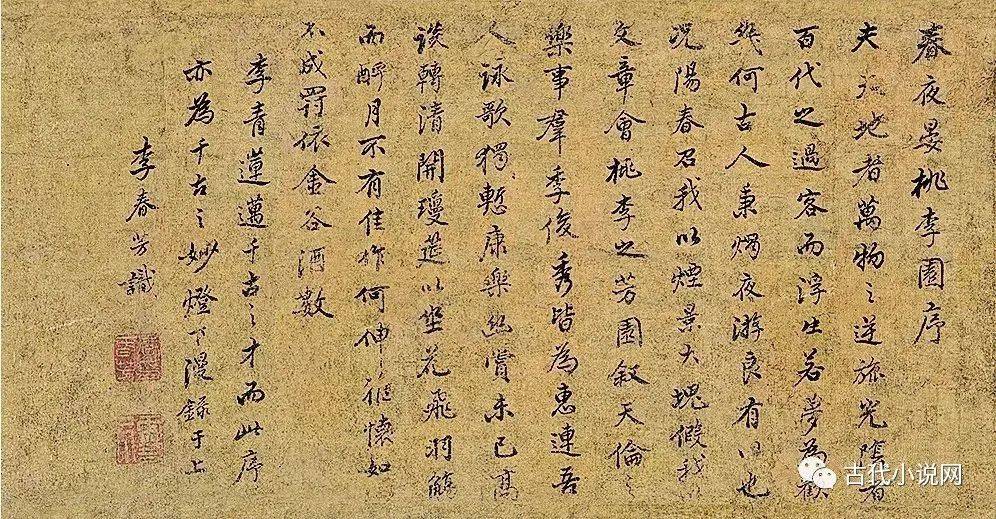 春夜晏桃李園序
夫天地者萬物之逆旅光陰者
百代之過客而浮生若夢為歡
幾何古人秉燭夜游良有以也
況陽春召我以煙景大塊假我以
文章會桃李之芳園叙天倫之
樂事羣季俊秀皆為惠連吾
人詠歌獨慙康樂幽賞未已高
談轉清開瓊莚以坐花飛羽觴
而醉月不有佳作何伸雅懷如
不成罰依金谷酒數
李青蓮邁千古之才而此序
亦為千古之妙燈下漫錄于上
李春芳識
古代小说网